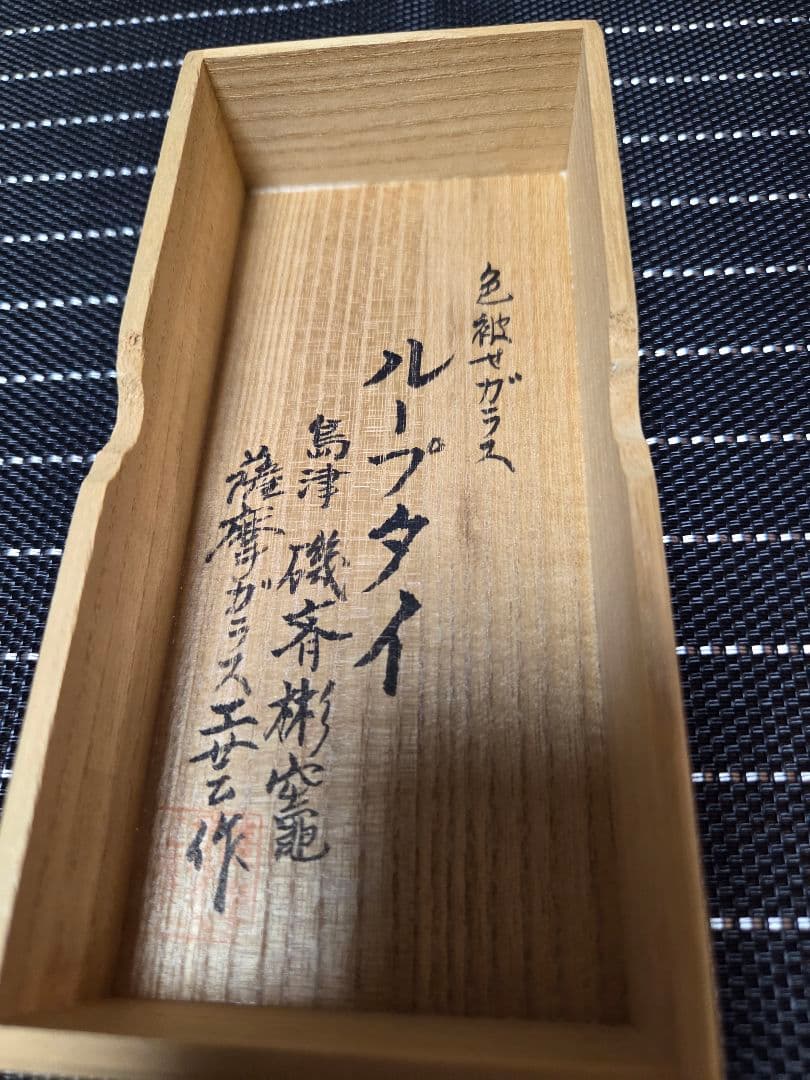 色被せガラス
ループタイ
島津 磯斉彬竈
薩摩ガラス工芸作